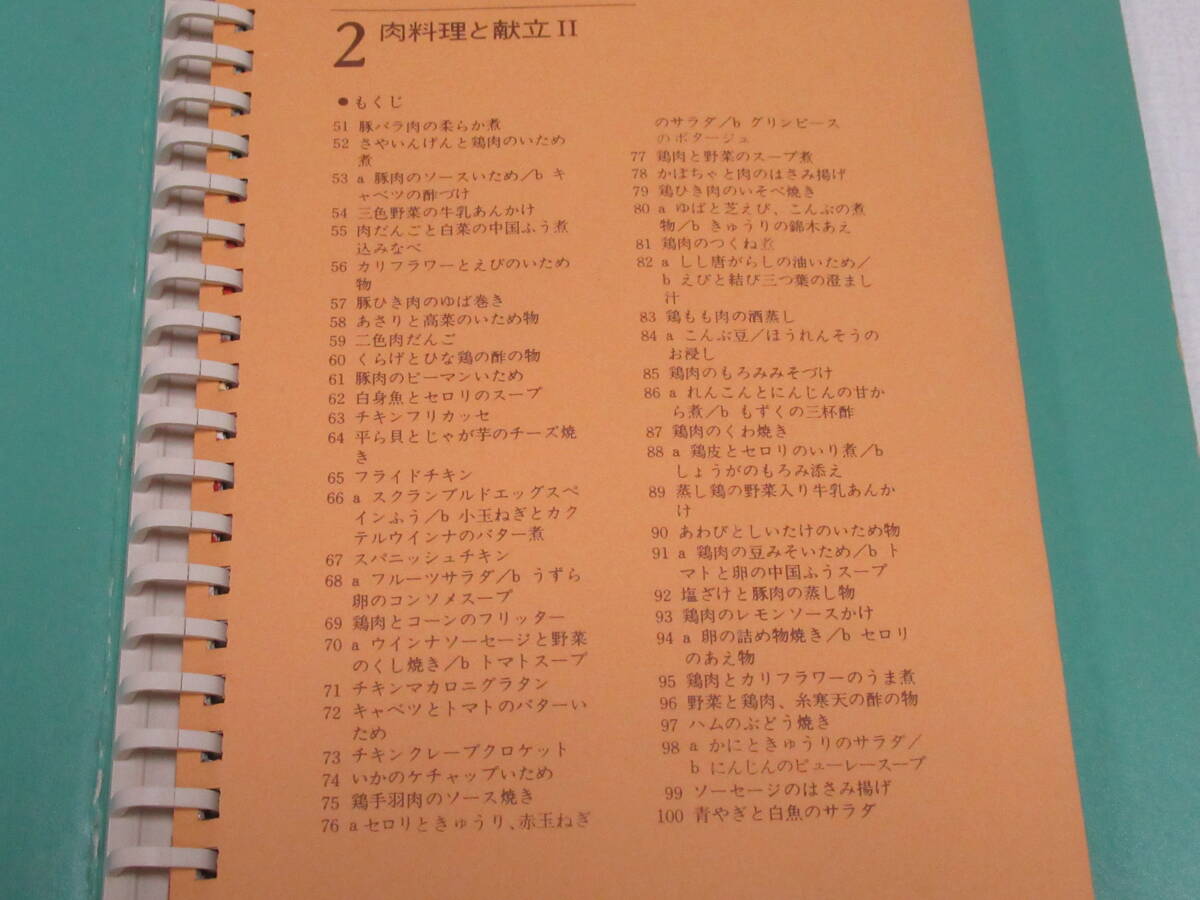 2 肉料理と献立II
● もくじ
51 豚バラ肉の柔らか煮
52 さやいんげんと鶏肉のいため
煮
53 a 豚肉のソースいため/b キ
ャベツの酢づけ
54 三色野菜の牛乳あんかけ
55 肉だんごと白菜の中国ふう煮
込みなべ
56 カリフラワーとえびのいため
物
57 豚ひき肉のゆば巻き
58 あさりと高菜のいため物
59 二色肉だんご
60 くらげとひな鶏の酢の物
61 豚肉のピーマンいため
62 白身魚とセロリのスープ
63 チキンフリカッセ
64 平ら貝とじゃが芋のチーズ焼
き
65 フライドチキン
66 a スクランブルドエッグスペ
インふう/b 小玉ねぎとカク
テルウインナのバター煮
67 スパニッシュチキン
68 a フルーツサラダ/b うずら
卵のコンソメスープ
69 鶏肉とコーンのフリッター
70 a ウインナソーセージと野菜
のくし焼き/b トマトスープ
71 チキンマカロニグラタン
72 キャベツとトマトのバターい
ため
73 チキンクレープクロケット
74 いかのケチャップいため
75 鶏手羽肉のソース焼き
76 a セロリときゅうり、赤玉ねぎ
のサラダ/b グリンピース
のポタージュ
77 鶏肉と野菜のスープ煮
78 かぼちゃと肉のはさみ揚げ
79 鶏ひき肉のいそべ焼き
80 a ゆばと芝えび、こんぶの煮
物/b きゅうりの錦木あえ
81 鶏肉のつくね煮
82 a しし唐がらしの油いため/
b えびと結び三つ葉の澄まし
汁
83 鶏もも肉の酒蒸し
84 a こんぶ豆/ほうれんそうの
お浸し
85 鶏肉のもろみみそづけ
86 a れんこんとにんじんの甘か
ら煮/b もずくの三杯酢
87 鶏肉のくわ焼き
88 a 鶏皮とセロリのいり煮/b
しょうがのもろみ添え
89 蒸し鶏の野菜入り牛乳あんか
け
90 あわびとしいたけのいため物
91 a 鶏肉の豆みそいため/b ト
マトと卵の中国ふうスープ
92 塩ざけと豚肉の蒸し物
93 鶏肉のレモンソースかけ
94 a 卵の詰め物焼き/b セロリ
のあえ物
95 鶏肉とカリフラワーのうま煮
96 野菜と鶏肉、糸寒天の酢の物
97 ハムのぶどう焼き
98 a かにときゅうりのサラダ/
b にんじんのピューレースープ
99 ソーセージのはさみ揚げ
100 青やぎと白魚のサラダ